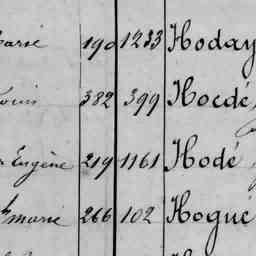 190 1233 Hoday
Louis 382 399 Hocdé
Eugène 219 1161 Hodé
marie 266 102 Hogué